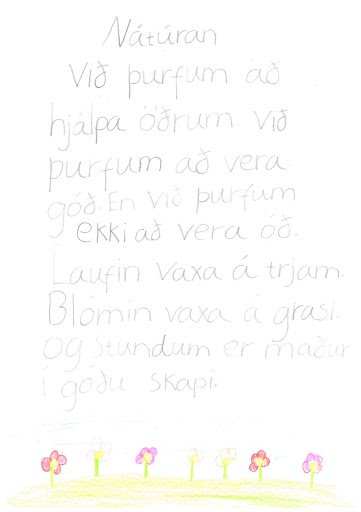 Nátúran
Við þurfum að
hjálpa öðrum. Við
þurfum að vera
góð. En við þurfum
ekki að vera óð.
Laufin vaxa á trjam.
Blómin vaxa á grasi.
Og stundum er maður
í góðu skapi.